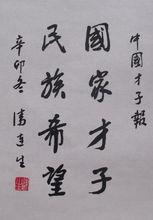 中國才子報
國家才子
民族希望
辛卯冬 清連生